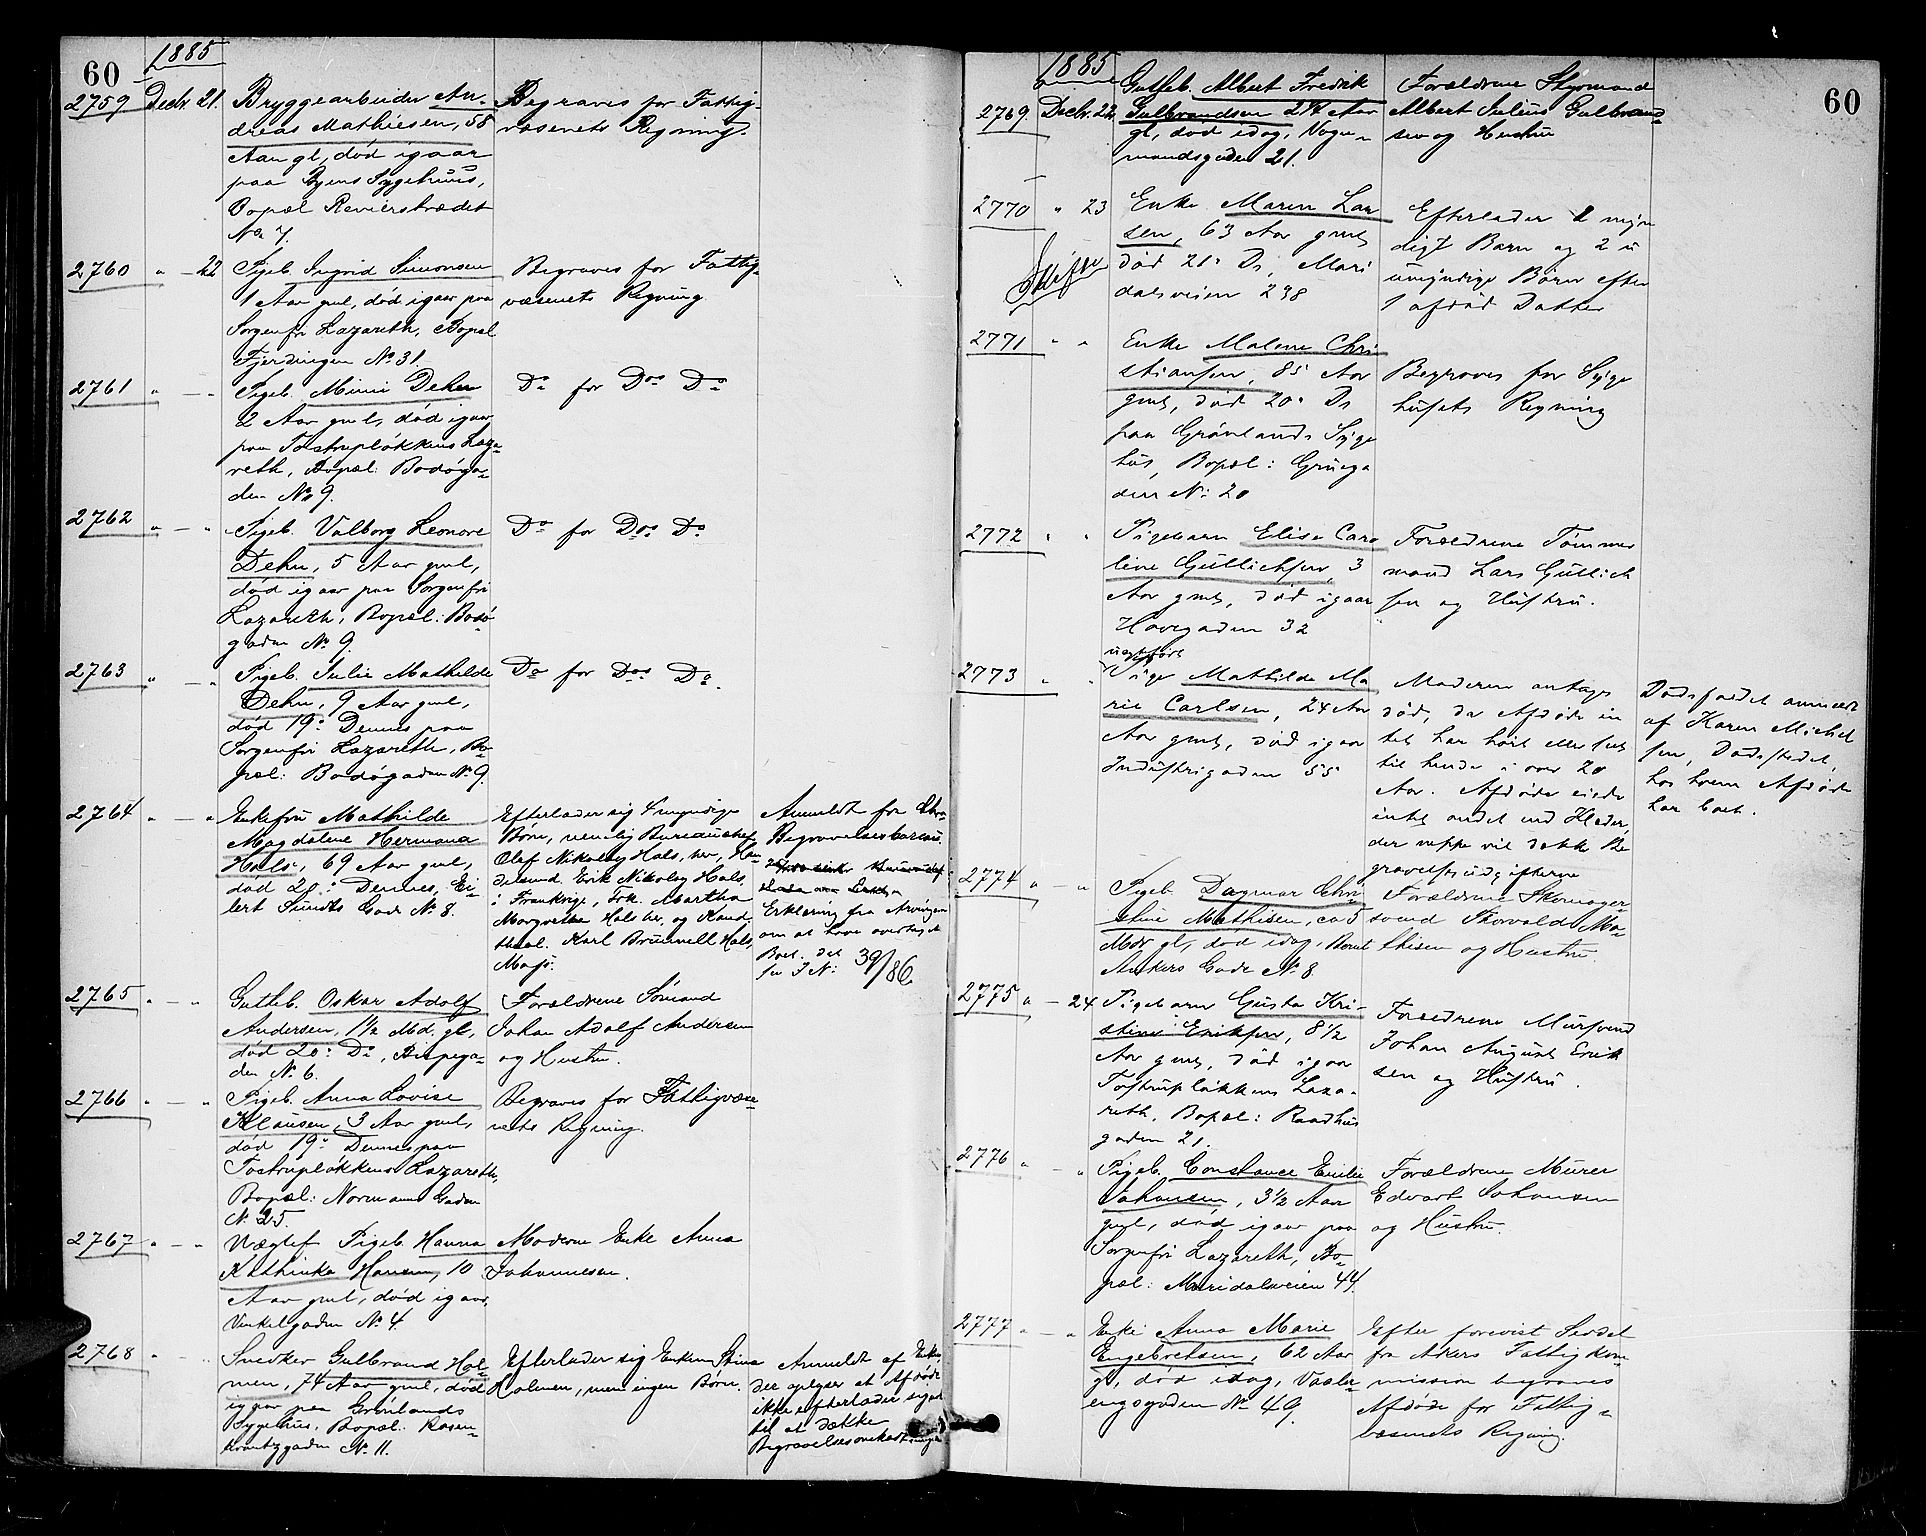 60
1885
2759 Decbr. 21.
Bryggearbeider An-
dreas Mathiesen, 58
Aar gl, død igaar
paa Byens Sygehuus,
Bopæl Revierstrædet
No 7.
Begraves for Fattig-
væsenets Regning.
2760 " - 22
Pigeb. Ingrid Simonsen
1 Aar gml, død igaar paa
Sorgenfri Lazareth, Bopæl
Fjerdingen No 31.
Begraves for Fattig-
væsenets Regning
2761 " - "
Pigeb. Mimi Dehn
2 Aar gml, død igaar
paa Tostrupløkkens Laza-
reth, Bopæl: Bodøga-
den No 9.
Do for Dos Do
2762 " - "
Pigeb. Valborg Leonore
Dehn, 5 Aar gml,
død igaar paa Sorgenfri
Lazareth, Bopæl: Bodø-
gaden No 9.
Do for Dos Do
2763 " - "
Pigeb. Julie Mathilde
Dehn, 9 Aar gml,
død 19: Dennes paa
Sorgenfri Lazareth, Bo-
pæl: Bodøgaden No 9.
Do for Dos Do.
2764 " - "
Enkefru Mathilde
Magdalene Hermana
Hals, 69 Aar gml,
død 20: Dennes, Ei-
lert Sundts Gade No 8.
Efterlader sig 4 myndige
Børn, nemlig Bureauchef
Olaf Nikolay Hals, her, Han-
delsmd. Erik Nikolay Hals,
i Frankrige, Frk. Martha
Margrethe Hals her, og Kand.
theol. Karl Brunnell Hals,
Moss.
Anmeldt fra Chra
Begravelsesbureau.
Erklæring fra Arvingerne
om at have overtaget
Boet. det
se J No: 39/86
2765 " - "
Gutteb. Oskar Adolf
Andersen, 1 1/2 Md. gl,
død 20: Do, Bispega-
den No 6.
Forældrene Sømand
Johan Adolf Andersen
og Hustru.
2766 " - "
Pigeb. Anna Lovise
Klausen, 3 Aar gml,
død 19: Dennes paa
Tostrupløkkens Lazareth,
Bopæl: Normanns Gaden
No 25.
Begraves for Fattigvæse-
nets Regning.
2767 " - "
Uægtef. Pigeb. Hanna
Kathinka Hansen, 10
Aar gml, død igaar,
Vinkelgaden No 4.
Moderen Enke Anna
Johannesen.
2768 " "
Snedker Gulbrand Hol-
men, 74 Aar gml, død
igaar paa Grønlands
Sygehus, Bopæl: Rosen-
krantzgaden No 11.
Efterlader sig Enken Stina
Holmen, men ingen Børn.
Anmeldt af Enken,
der oplyser at Afdøde
ikke efterlader noget
til at dække
Begravelsesomkostninger
1885
60
2769 Decbr. 22.
Gutteb. Albert Fredrik
Gulbrandsen 2 1/2 Aar
gl, død idag, Vogn-
mandsgaden 21.
Forældrene Styrmand
Albert Julius Gulbrand-
sen og Hustru
2770 " 23
Skifte
Enke Maren Lar
sen, 63 Aar gml,
død 21: Ds, Mari
dalsveien 238
Efterlader 1 myn
digt Barn og 2 u
umyndige Børn efter
1 afdød Datter
2771 " "
Enke Malene Chri
stiansen, 85 Aar
gml, død 20: Ds
paa Grønlands Syge
hus, Bopæl: Grüega
den No: 20
Begraves for Syge
husets Regning
2772 " "
Pigebarn Elise Caro
line Gullichsen, 3
Aar gml, død igaar
Havegaden 32
Forældrene Tømmer
mand Lars Gullich
sen og Hustru.
2773 " "
uægtefødt
Pige Mathilde Ma
rie Carlsen, 24 Aar
Aar gml, død igaar
Industrigaden 55
Moderen antages
død, da Afdøde in
tet har hørt eller seet
til hende i over 20
Aar. Afdøde eiede
intet andet end Klæder,
der neppe vil dække Be
gravelsesudgifterne
Dødsfaldet anmeldt
af Karen Michel
sen, Dødsstedet,
hos hvem Afdøde
har boet.
2774 " - "
Pigeb. Dagmar Chri-
stine Mathisen, ca 5
Mdr gl, død idag, Bernt
Ankers Gade No 8
Forældrene Skomager-
svend Thorvald Ma-
thisen og Hustru.
2775 " - 24
Pigebarn Gusta Kri-
stine Eriksen, 8 1/2
Aar gml, død igaar
Tostrupløkkens Laza-
reth, Bopæl: Raadhus
gaden 21.
Forældrene Mursvend
Johan August Erik
sen og Hustru.
2776 " - "
Pigeb. Constance Emilie
Johansen, 3 1/2 Aar
gml, død igaar paa
Sorgenfri Lazareth, Bo-
pæl: Maridalsveien 44.
Forældrene Murer
Edvart Johansen
og Hustru.
2777 " - "
Enke Anna Marie
Engebretsen, 62 Aar
gl, død idag, Vaaler-
engsgaden No 49.
Efter forevist Seddel
fra Akers Fattigkom-
mission begraves
Afdøde for Fattig-
væsenets Regning.